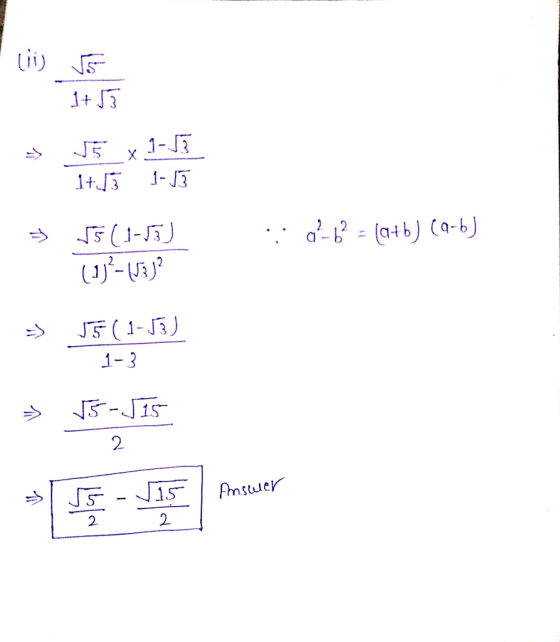 (ii) √5 / (1+√3)
⇒ √5 / (1+√3) × (1-√3) / (1-√3)
⇒ √5(1-√3) / ((1)²-(√3)²) ∵ a²-b² = (a+b) (a-b)
⇒ √5(1-√3) / (1-3)
⇒ (√5-√15) / 2
⇒ √5/2 - √15/2 Answer